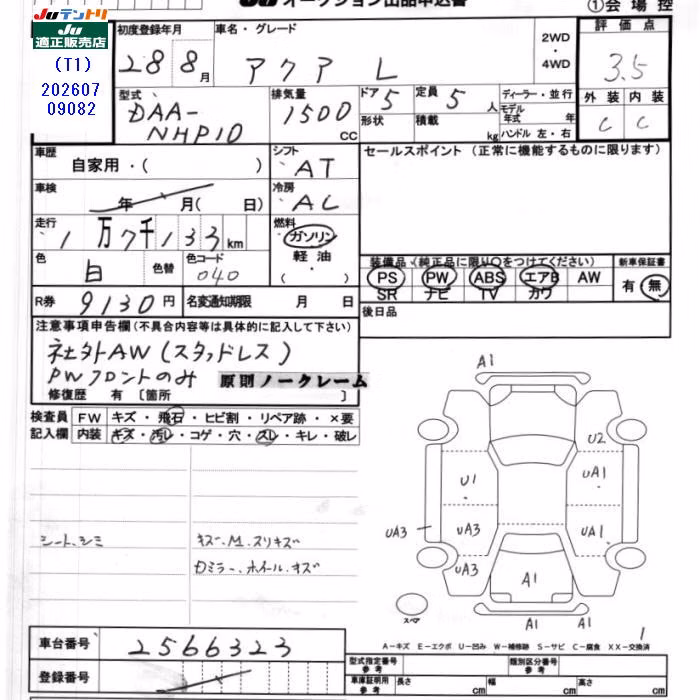 JUテントリ JU オークション出品申込書 ①会場控
JU
適正販売店
(T1)
202607
09082
初度登録年月 車名・グレード 2WD・4WD 評価点
28 8月 アクア L 3.5
型式 排気量 ドア 定員 ディーラー・並行 外装 内装
DAA-NHP10 1500 CC 5 5人 モデル年式 年 C C
形状 積載 kg ハンドル 左・右
車歴 シフト セールスポイント (正常に機能するものに限ります)
自家用・( ) AT
車検 冷房
年 月( 日) AC
走行 燃料
1万7千133km ガソリン
色 色替 色コード 軽油・
白 040 ( )
装備品(純正品に限り○をつけてください) 新車保証書
PS PW ABS エアB AW 有・無
SR ナビ TV カワ
R券 9130円 名変通知期限 月 日 後日品
注意事項申告欄(不具合内容等は具体的に記入して下さい)
社外AW(スタッドレス)
PWフロントのみ 原則ノークレーム
修復歴 有 〔箇所 〕
検査員 FW キズ・飛石・ヒビ割・リペア跡・×要
記入欄 内装 キズ・汚レ・コゲ・穴・スレ・キレ・破レ
シート、シミ キズ、M、スリキズ
Dミラー、ホイール、キズ
A1
U2
U1 UA1
UA3 UA3 UA1
UA3 A1
スペア A1 A1
1
A-キズ E-エクボ U-凹み W-補修跡 S-サビ C-腐食 XX-交換済
車台番号 2566323
型式指定番号 参考 類別区分番号 参考
登録番号
車庫証明用 参考 長さ cm 幅 cm 高さ cm